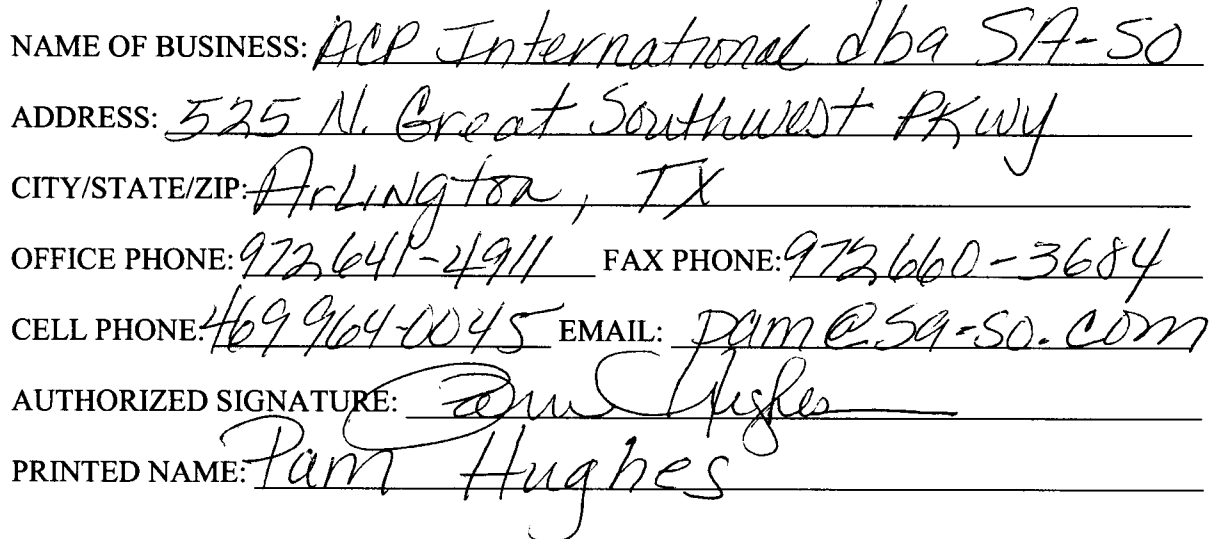 NAME OF BUSINESS: ACP International dba SA-SO
ADDRESS: 525 N. Great Southwest PKwy
CITY/STATE/ZIP: Arlington, TX
OFFICE PHONE: 972 641-4911 FAX PHONE: 972 660-3684
CELL PHONE: 469 964-0045 EMAIL: pam@sa-so.com
AUTHORIZED SIGNATURE: Pam Hughes
PRINTED NAME: Pam Hughes